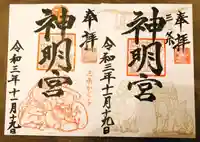 奉拝
神明宮
令和三年十一月十九日
奉拝
三条
神明宮
令和三年十一月十九日